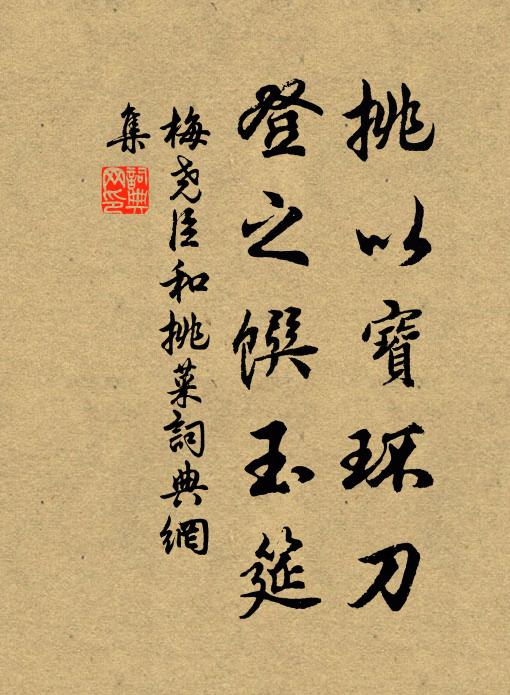 挑以寶环刀
登之饌玉筵
梅堯臣和挑菜詞典網
集
詞典
网印